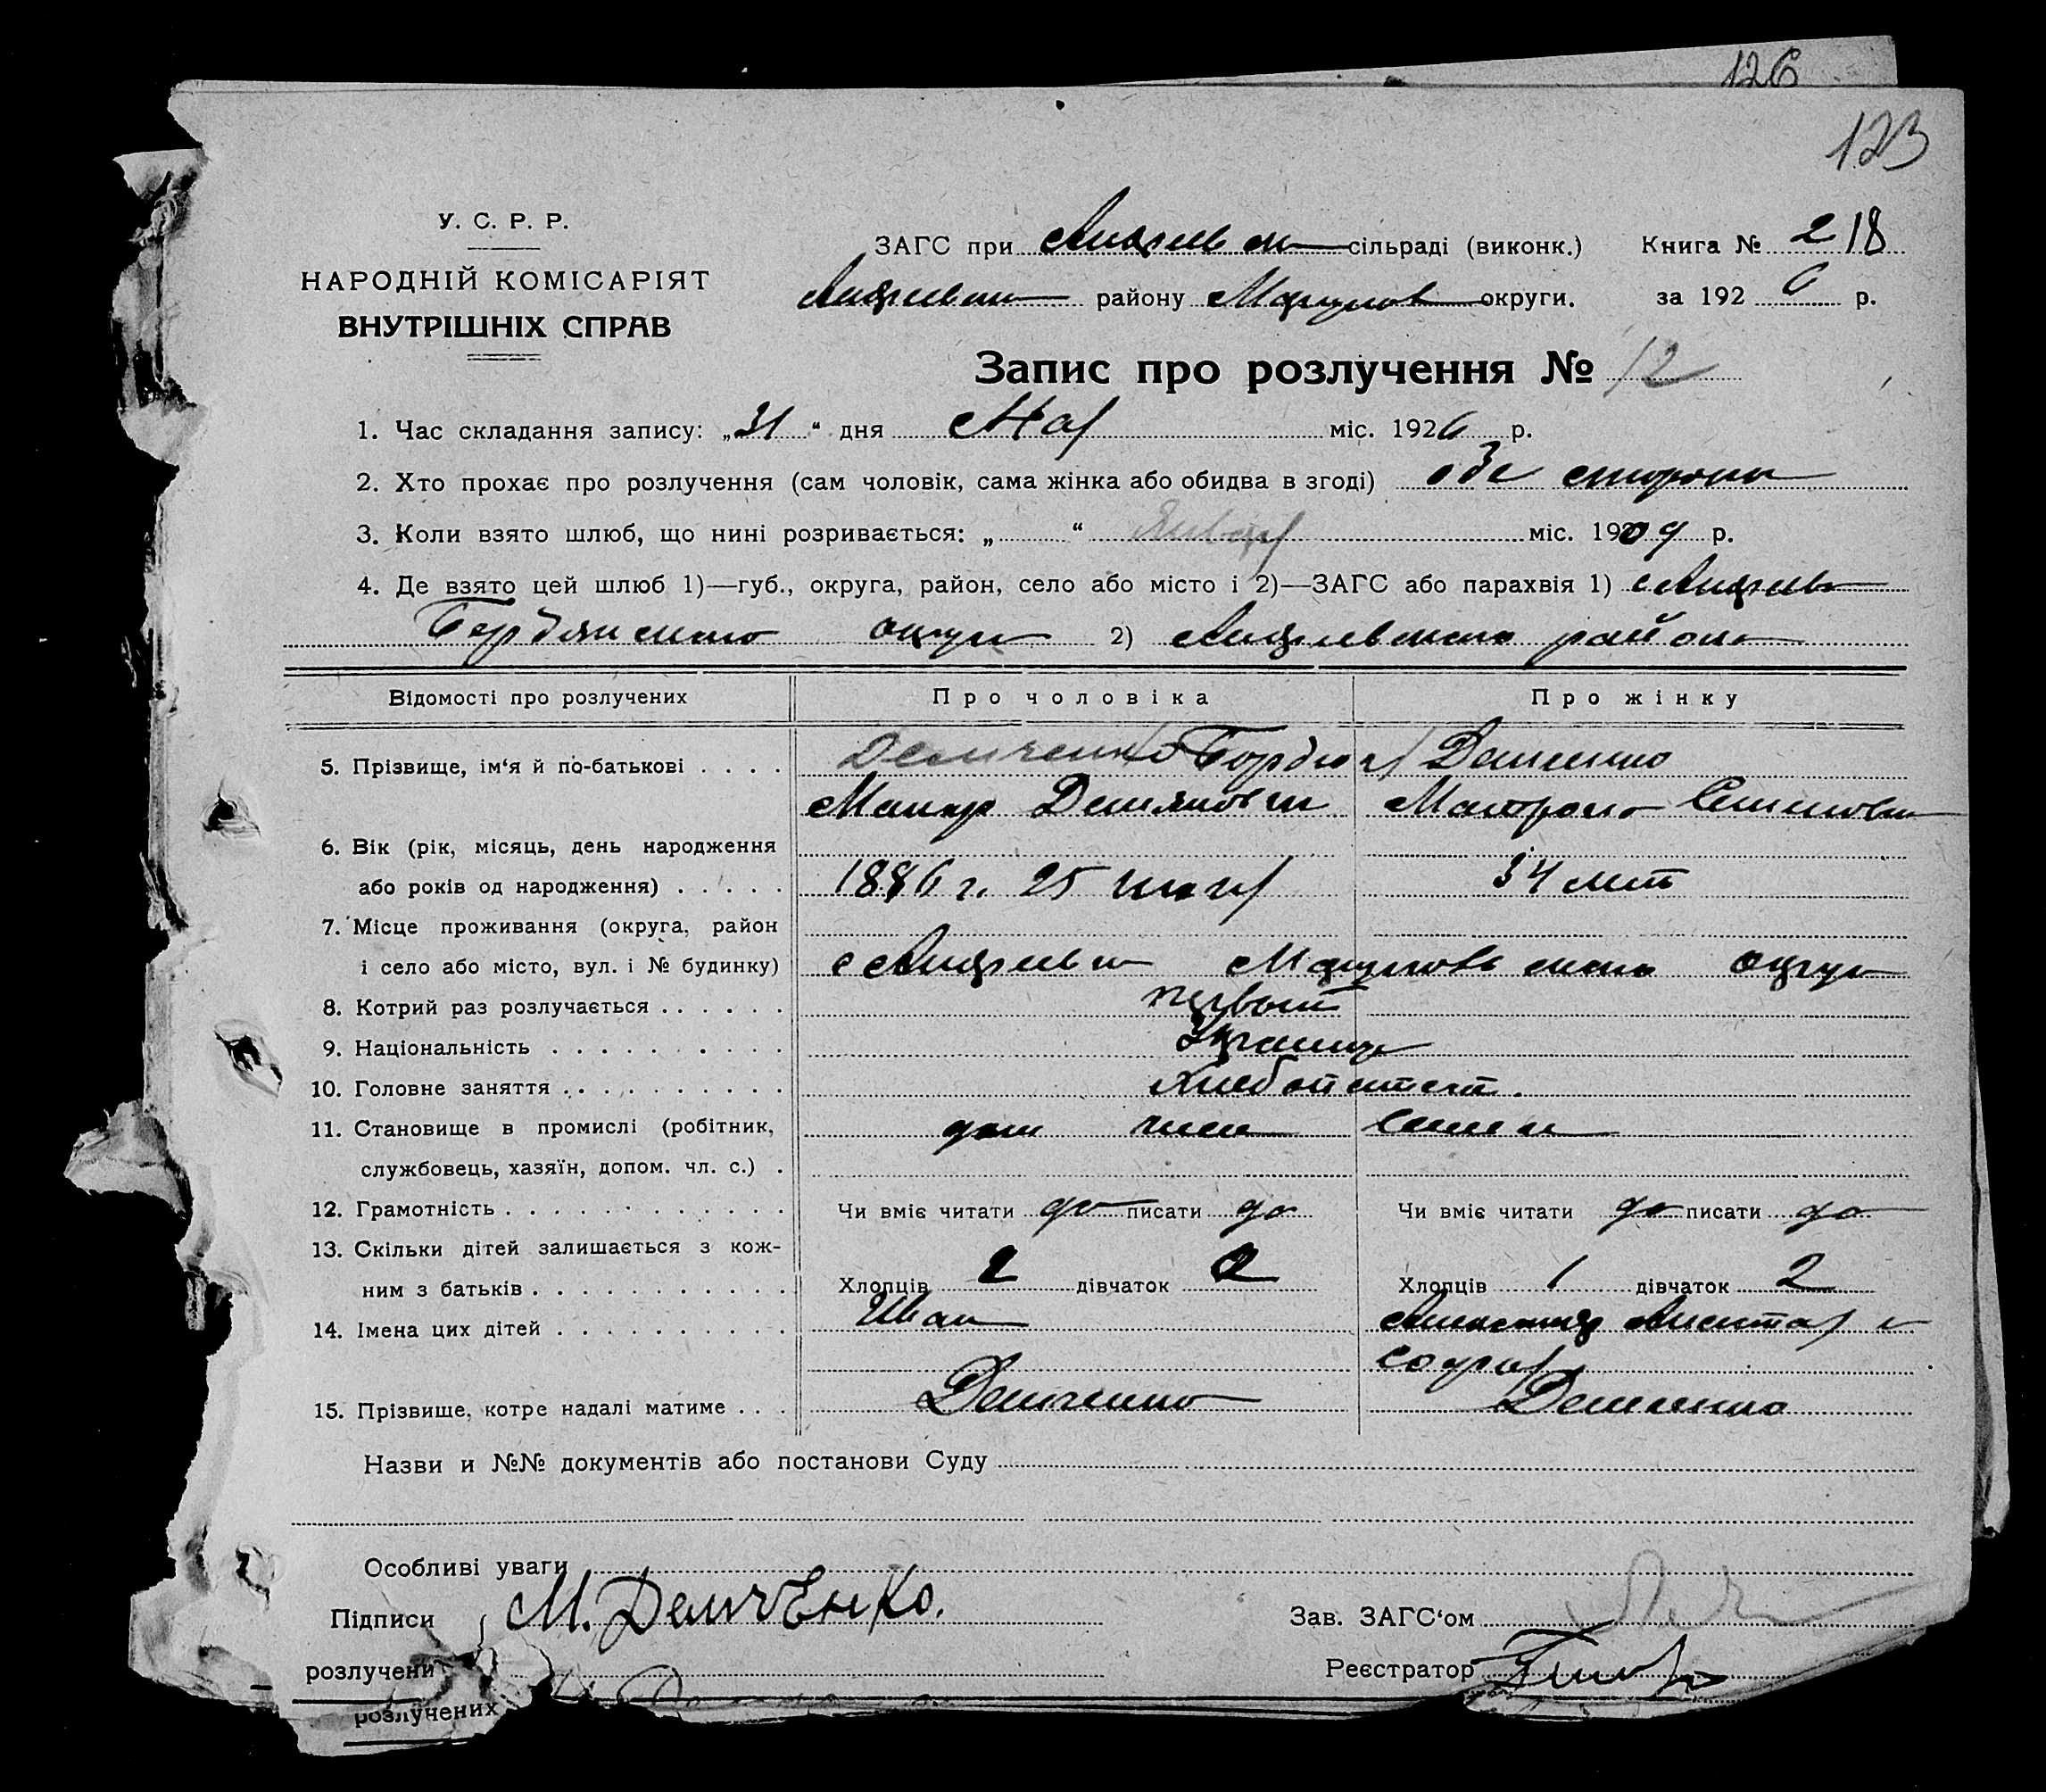 126
123
У. С. Р. Р.
НАРОДНІЙ КОМІСАРІЯТ
ВНУТРІШНІХ СПРАВ
ЗАГС при сільраді (виконк.) Книга № 218
району округи. за 1926 р.
Запис про розлучення № 12
1. Час складання запису: „31“ дня Мая міс. 1926 р.
2. Хто прохає про розлучення (сам чоловік, сама жінка або обидва в згоді) обе стороны
3. Коли взято шлюб, що нині розривається: „ “ Января міс. 1909 р.
4. Де взято цей шлюб 1)—губ., округа, район, село або місто і 2)—ЗАГС або парахвія 1)
Бердянского округа 2) Андреевского района
Відомості про розлучених Про чоловіка Про жінку
5. Прізвище, ім‘я й по-батькові . . . . Демченко Демченко
Макар Демянович Матрона Семеновна
6. Вік (рік, місяць, день народження
або років од народження) . . . . . 1886 г. 25 34 лет
7. Місце проживання (округа, район
і село або місто, вул. і № будинку) с Андреевка Мариупольского округа
8. Котрий раз розлучається . . . . . . первый
9. Національність . . . . . . . . . . Украинцы
10. Головне заняття . . . . . . . . . . хлебопашест.
11. Становище в промислі (робітник, член семьи
службовець, хазяїн, допом. чл. с.) .
12. Грамотність . . . . . . . . . . . . Чи вміє читати да писати да Чи вміє читати да писати да
13. Скільки дітей залишається з кож-
ним з батьків . . . . . . . . . . . Хлопців дівчаток Хлопців 1 дівчаток 2
14. Імена цих дітей . . . . . . . . . . Иван и
Софья
15. Прізвище, котре надалі матиме . . . Демченко Демченко
Назви и №№ документів або постанови Суду
Особливі уваги
Підписи М. Демченко. Зав. ЗАГС‘ом
розлучени Реєстратор
розлучених